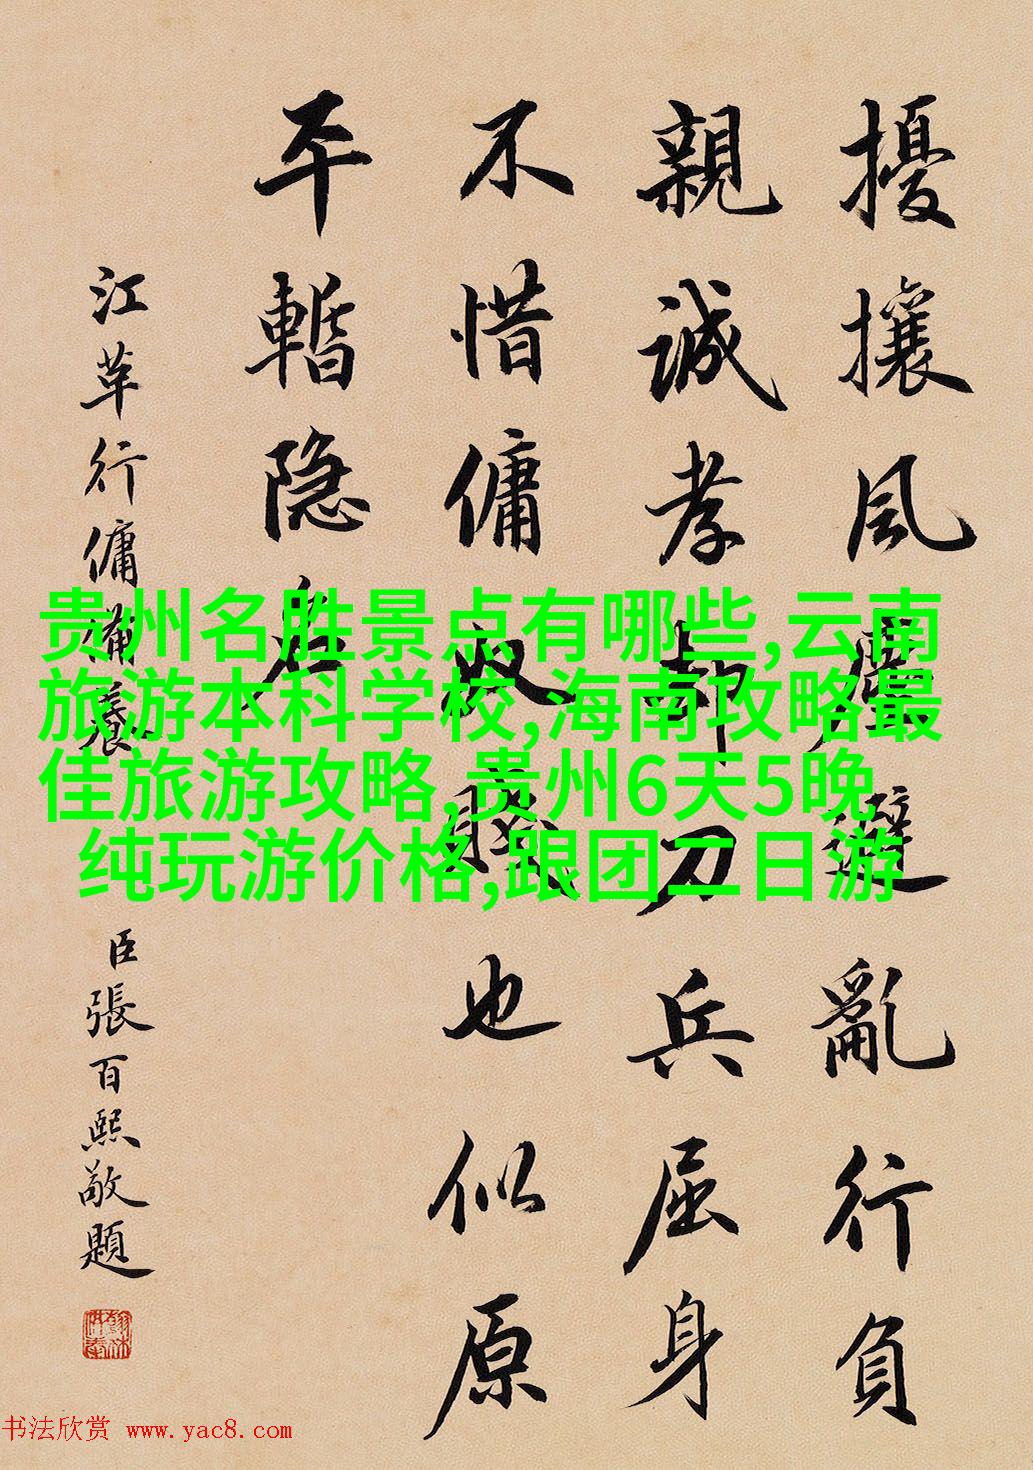 擾攘風塵避亂行負
親誠孝却刀兵屈身
不惜傭奴賤也似原
平暫隐名
江革行傭備養
臣張百熙敬題
贵州名胜景点有哪些,云南
旅游本科学校,海南攻略最
佳旅游攻略,贵州6天5晚,
纯玩游价格,跟团二日游
书法欣赏 www.yac8.com